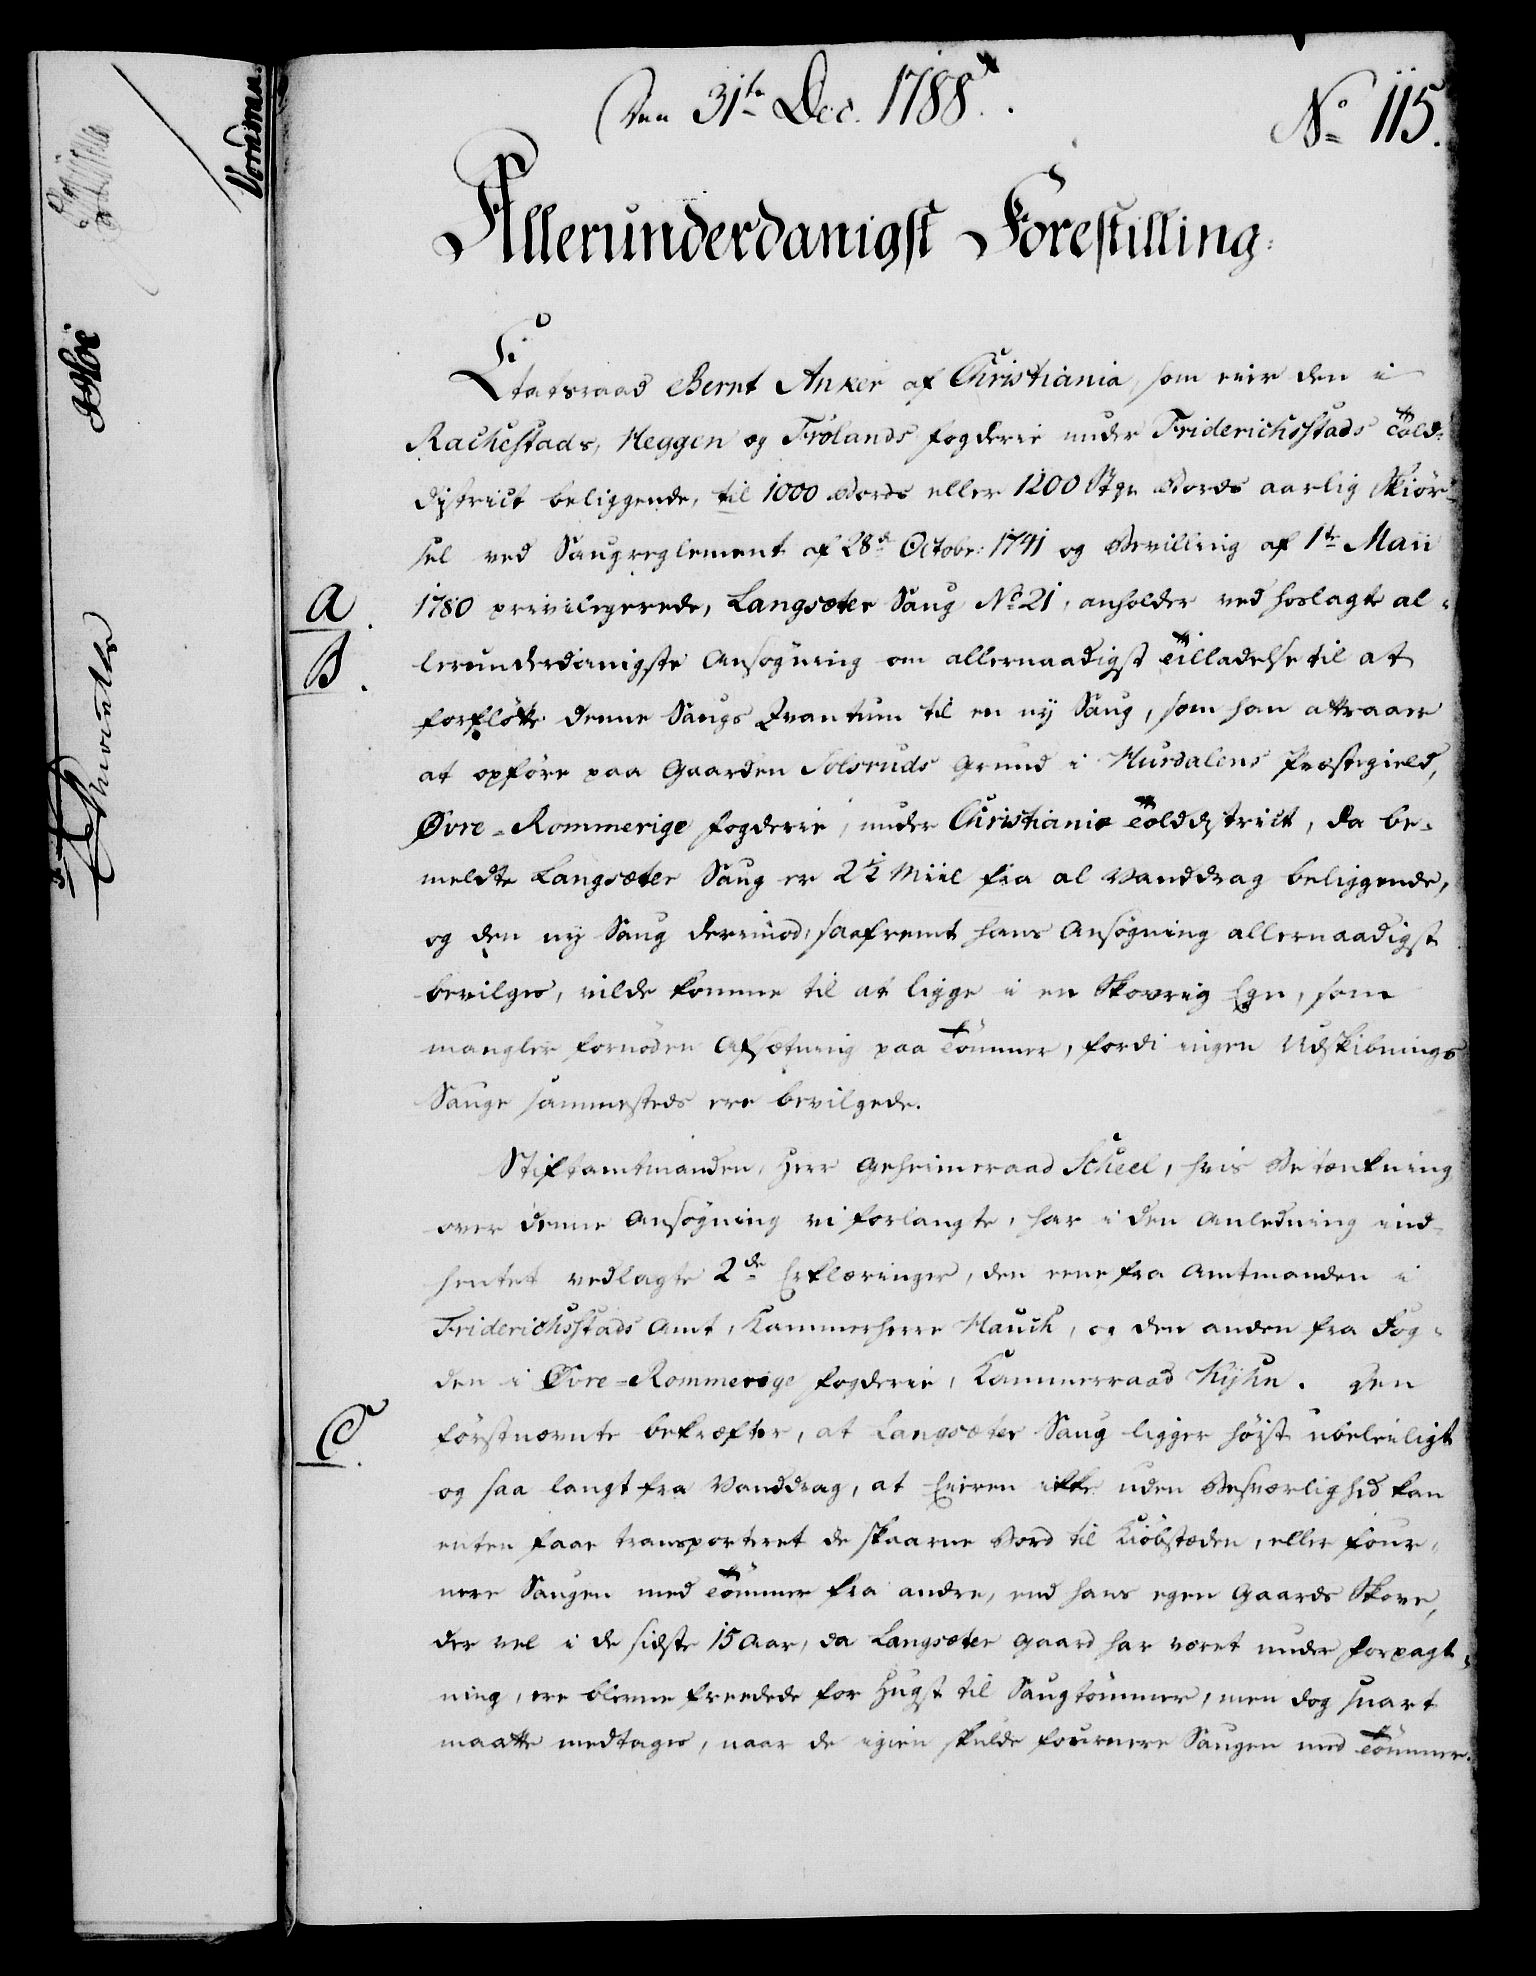 Den 31te Dec. 1788.
No 115.
Allerunderdanigst Forestilling.
Etatsraad Bernt Anker af Christiania, som eier den i
Rachestads, Heggen og Frølands Fogderie under Friderichsstads Told-
district beliggende, til 1000 Bords eller 1200 Styr Bords aarlig Skiør-
sel ved Saugreglement af 28de Octobr: 1741 og Bevilling af 1te Maii
A.
1780 privilegerede, Langsæter Saug No 21, anholder ved hoslagte al-
B.
lerunderdanigste Ansøgning om allernaadigst Tilladelse til at
forflötte denne Saugs Qvantum til en nÿ Saug, som han attraaer
at opføre paa Gaarden Solsruds Grund i Hurdalens Præstegield,
Øvre-Rommerige Fogderie, under Christiania Tolddistrict, da be-
meldte Langsæter Saug er 2½ Miil fra al Vanddrag beliggende,
og den nÿ Saug derimod, saafremt hans Ansøgning allernaadigst
bevilges, vilde komme til at ligge i en Skovrig Egn, som
mangler fornøden Afsætning paa Tömmer, fordi ingen Udskibnings
Sauge sammesteds ere bevilgede.
Stiftamtmanden, Herr Geheimeraad Scheel, hvis Betænkning
over denne Ansøgning vi forlangte, har i den Anledning ind-
hentet vedlagte 2de Erklæringer, den eene fra Amtmanden i
Friderichsstads Amt, Kammerherre Hauch, og den anden fra Fog-
den i Øvre-Rommerige Fogderie, Kammerraad Hÿhn. Den
C.
förstnævnte bekræfter, at Langsæter Saug ligger høist ubeleiligt
og saa langt fra Vanddrag, at Eieren ikke uden Besværlighed kan
enten faae transporteret de skaarne Bord til Kiøbstæden, eller four-
nere Saugen med Tömmer fra andre, end hans egen Gaards Skove,
der vel i de sidste 15 Aar, da Langsæter Gaard har været under Forpagt-
ning, ere blevne freedede for Hugst til Saugtömmer, men dog snart
maatte medtages, naar de igien skulde fournere Saugen med Tömmer.